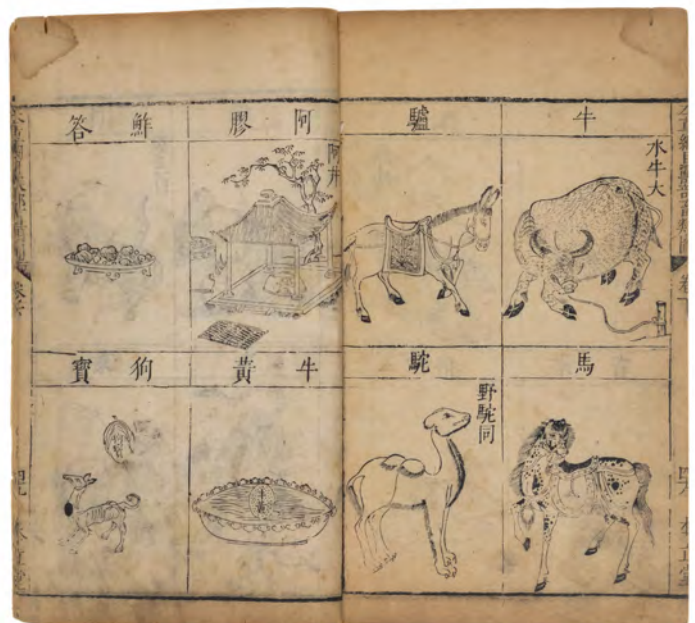 牛
水牛大
驢
馬
駝
野駝同
阿膠
阿井
鮮荅
牛黃
牛黃
狗寶